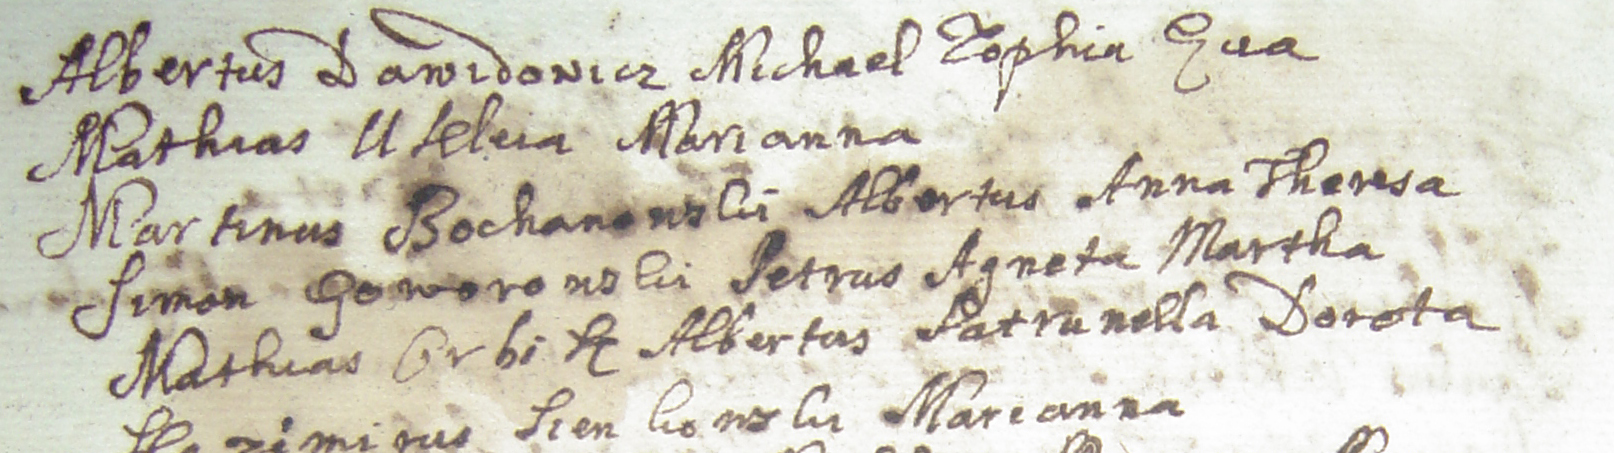 Albertus Dawidowicz Michael Zophia Eua
Mathias Marianna
Martinus Bochanowski Albertus Anna Theresa
Simon Goworowski Petrus Agneta Martha
Mathias Orbik Albertus Patrunella Dorota
Kazimirus Sienkowski Marianna